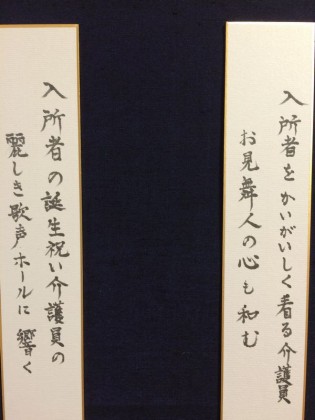 入所者をかいがいしく看る介護員
お見舞人の心も和む
入所者の誕生祝い介護員の
麗しき歌声ホールに響く